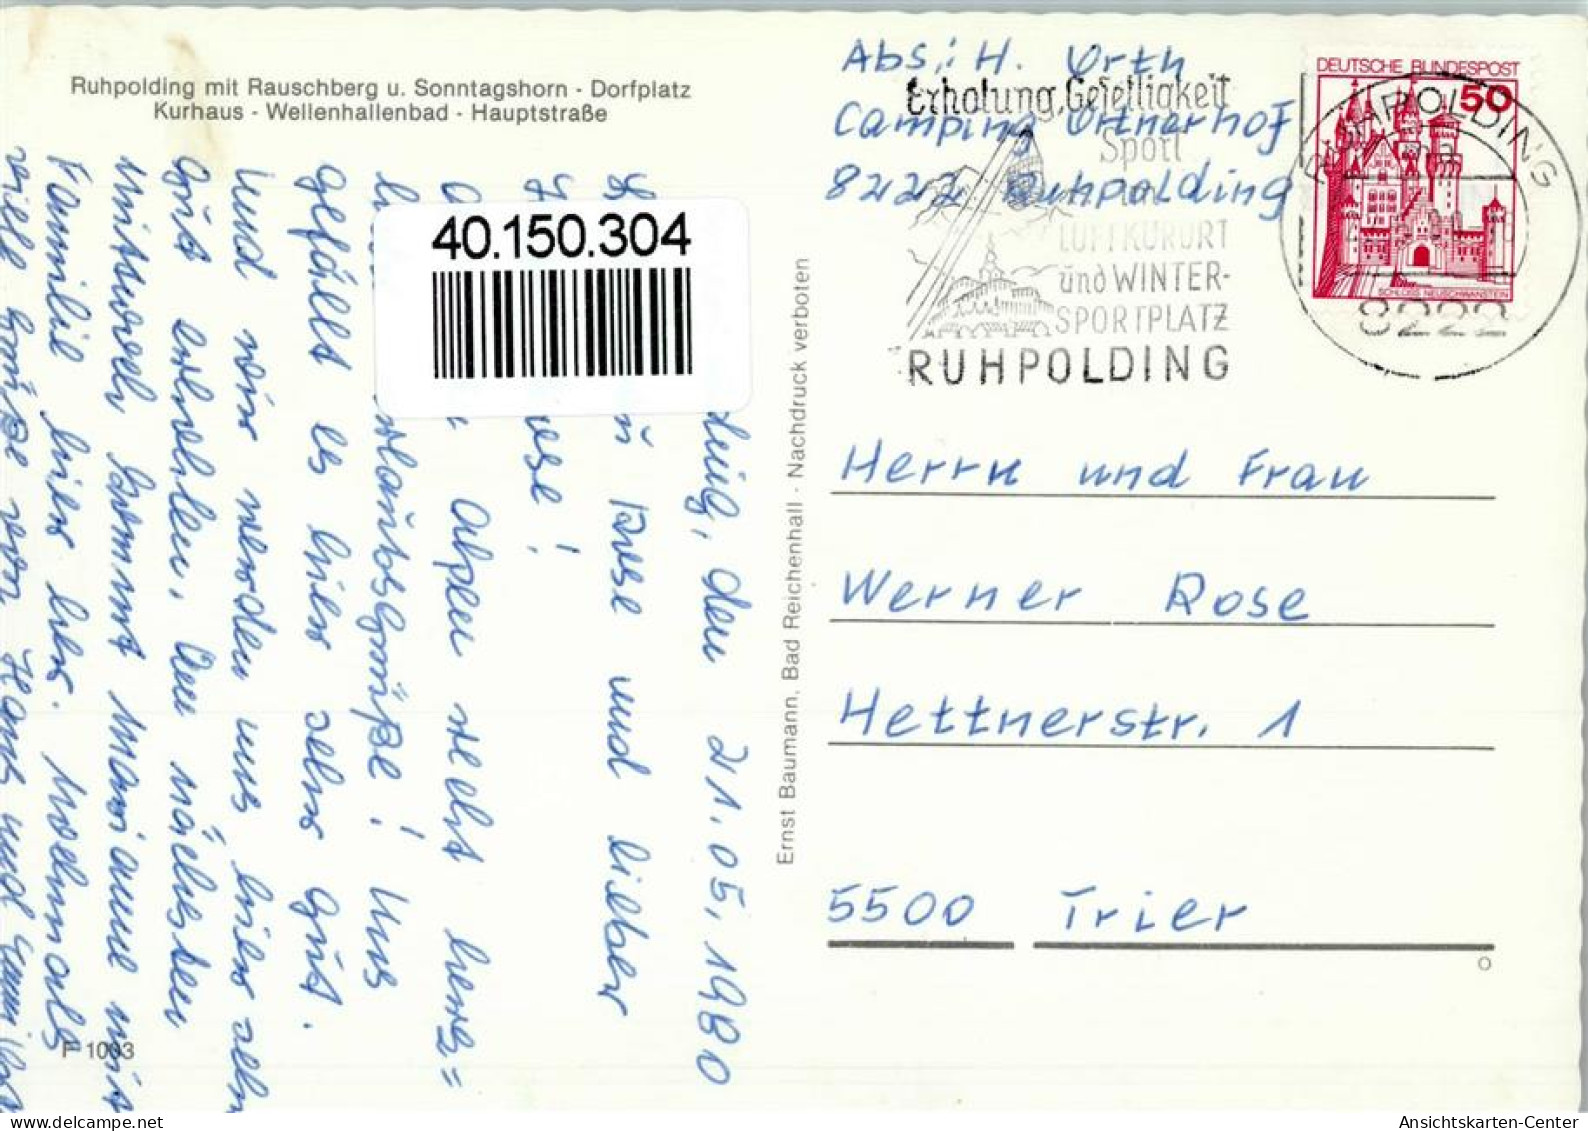 Ruhpolding mit Rauschberg u. Sonntagshorn - Dorfplatz
Kurhaus - Wellenhallenbad - Hauptstraße
den 21.05.1980
Rose und lieber
Alpen recht herz=
Urlaubsgrüße! Uns
gefällt es hier sehr gut.
Und wir werden uns hier sehr
gut erholen. Am nächsten
Mittwoch kommt Marianne mit
Familie hier her. Nochmals
viele Grüße von Hans und
F 1003
40.150.304
Ernst Baumann, Bad Reichenhall - Nachdruck verboten
Abs.: H. Orth
Camping Ortnerhof
8222 Ruhpolding
Erholung, Geselligkeit
Sport
im
LUFTKURORT
und WINTER-
SPORTPLATZ
RUHPOLDING
DEUTSCHE BUNDESPOST
50
SCHLOSS NEUSCHWANSTEIN
RUHPOLDING
8222
Herrn und Frau
Werner Rose
Hettnerstr. 1
5500 Trier
Ansichtskarten-Center